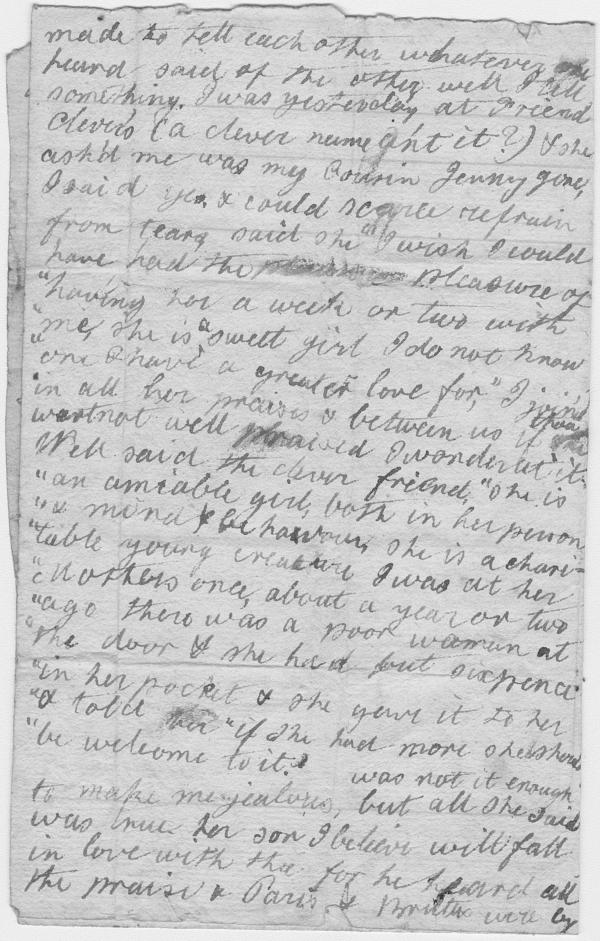 made to tell each other whatever we
heard said of the other well I tell
something. I was yesterday at Friend
Clever's (a clever name ain't it?) & she
ask'd me was my Cousin Jenny gone,
I said yes, & could scarce refrain
from tears, said she "I wish I could
have had the pleasure of
"having her a week or two with
"me, she is a sweet girl I do not know
"one I have a greater love for," I join'd
in all her praises & between us if thou
wert not well praised I wonder at it.
Well said the clever friend, "she is
"an amiable girl, both in her person
"& mind & behaviour, she is a chari-
"table young creature I was at her
"Mothers once, about a year or two
"ago there was a poor woman at
"the door & she had but sixpence
"in her pocket & she gave it to her
"& told her "if she had more she should
"be welcome to it." was not it enough
to make me jealous, but all she said
was true her son I believe will fall
in love with thee for he heard all
the praise & Paris & were by